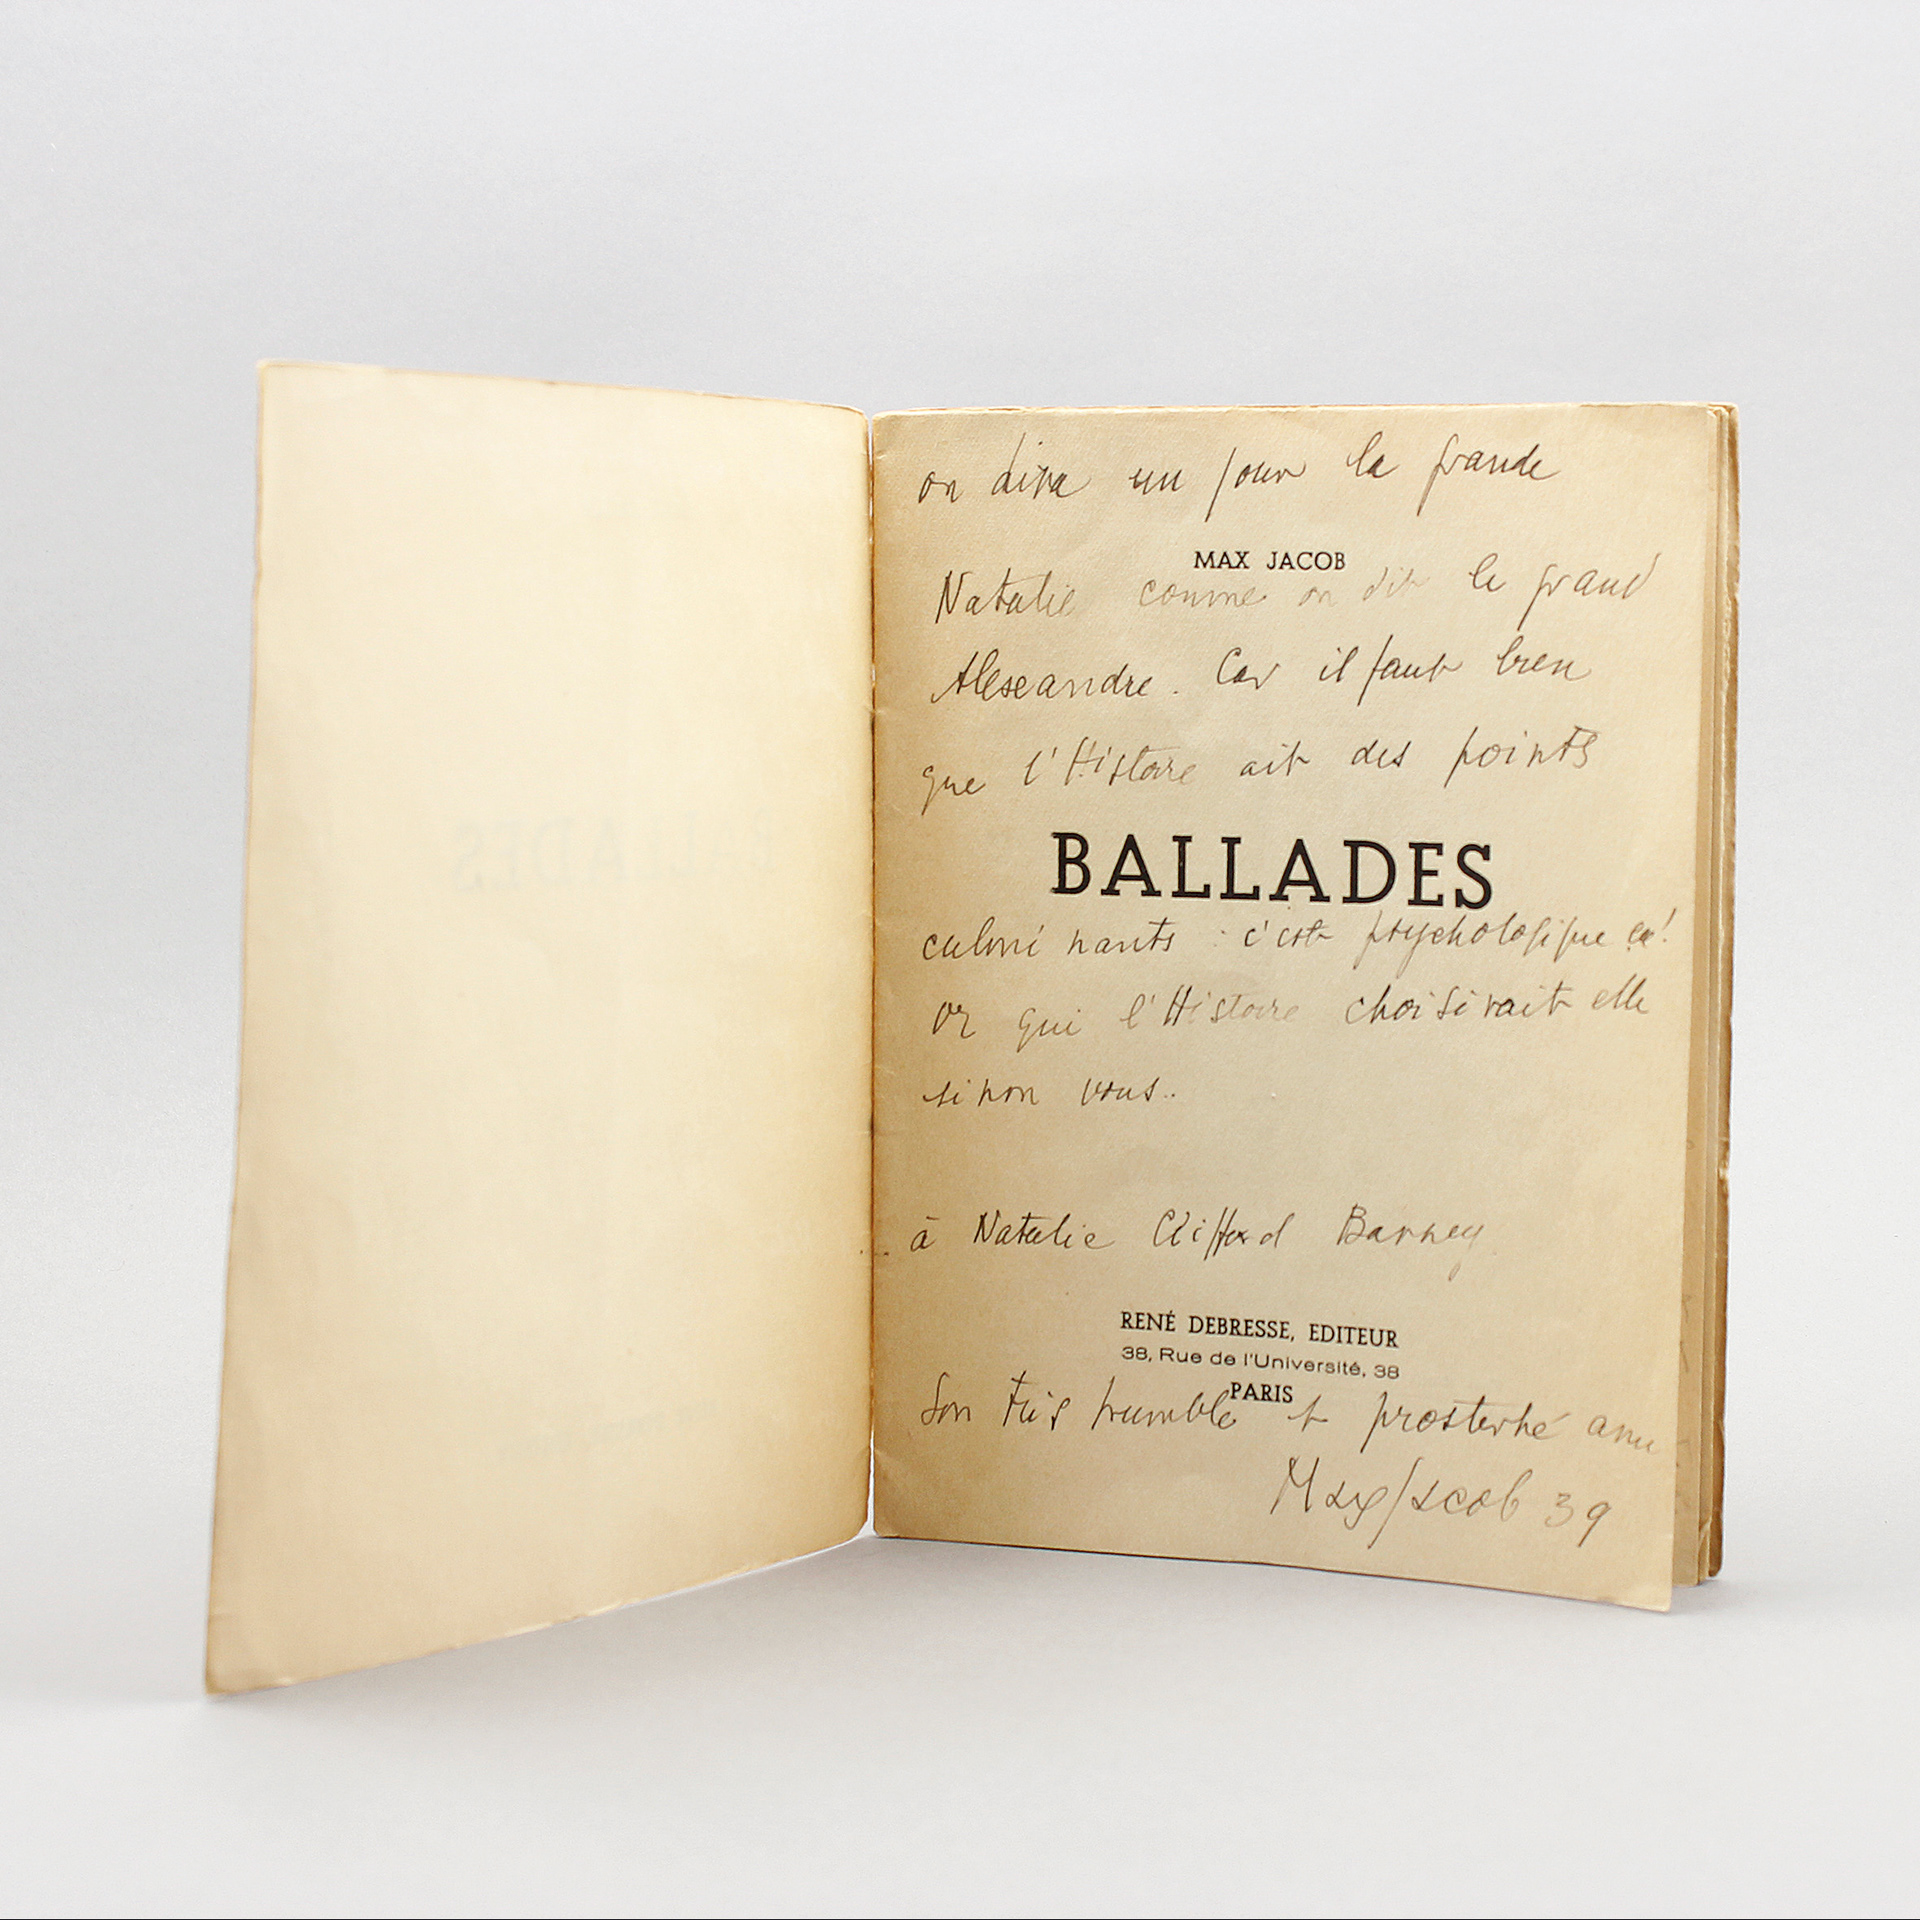 on dira un jour la grande
MAX JACOB
Natalie comme on dit le grand
Alexandre. Car il faut bien
que l'Histoire ait des points
BALLADES
culminants : c'est psychologique ça!
or qui l'Histoire choisirait elle
sinon vous..
à Natalie Clifford Barney
RENÉ DEBRESSE, EDITEUR
38, Rue de l'Université, 38
PARIS
Son très humble et prosterné ami
Max Jacob 39